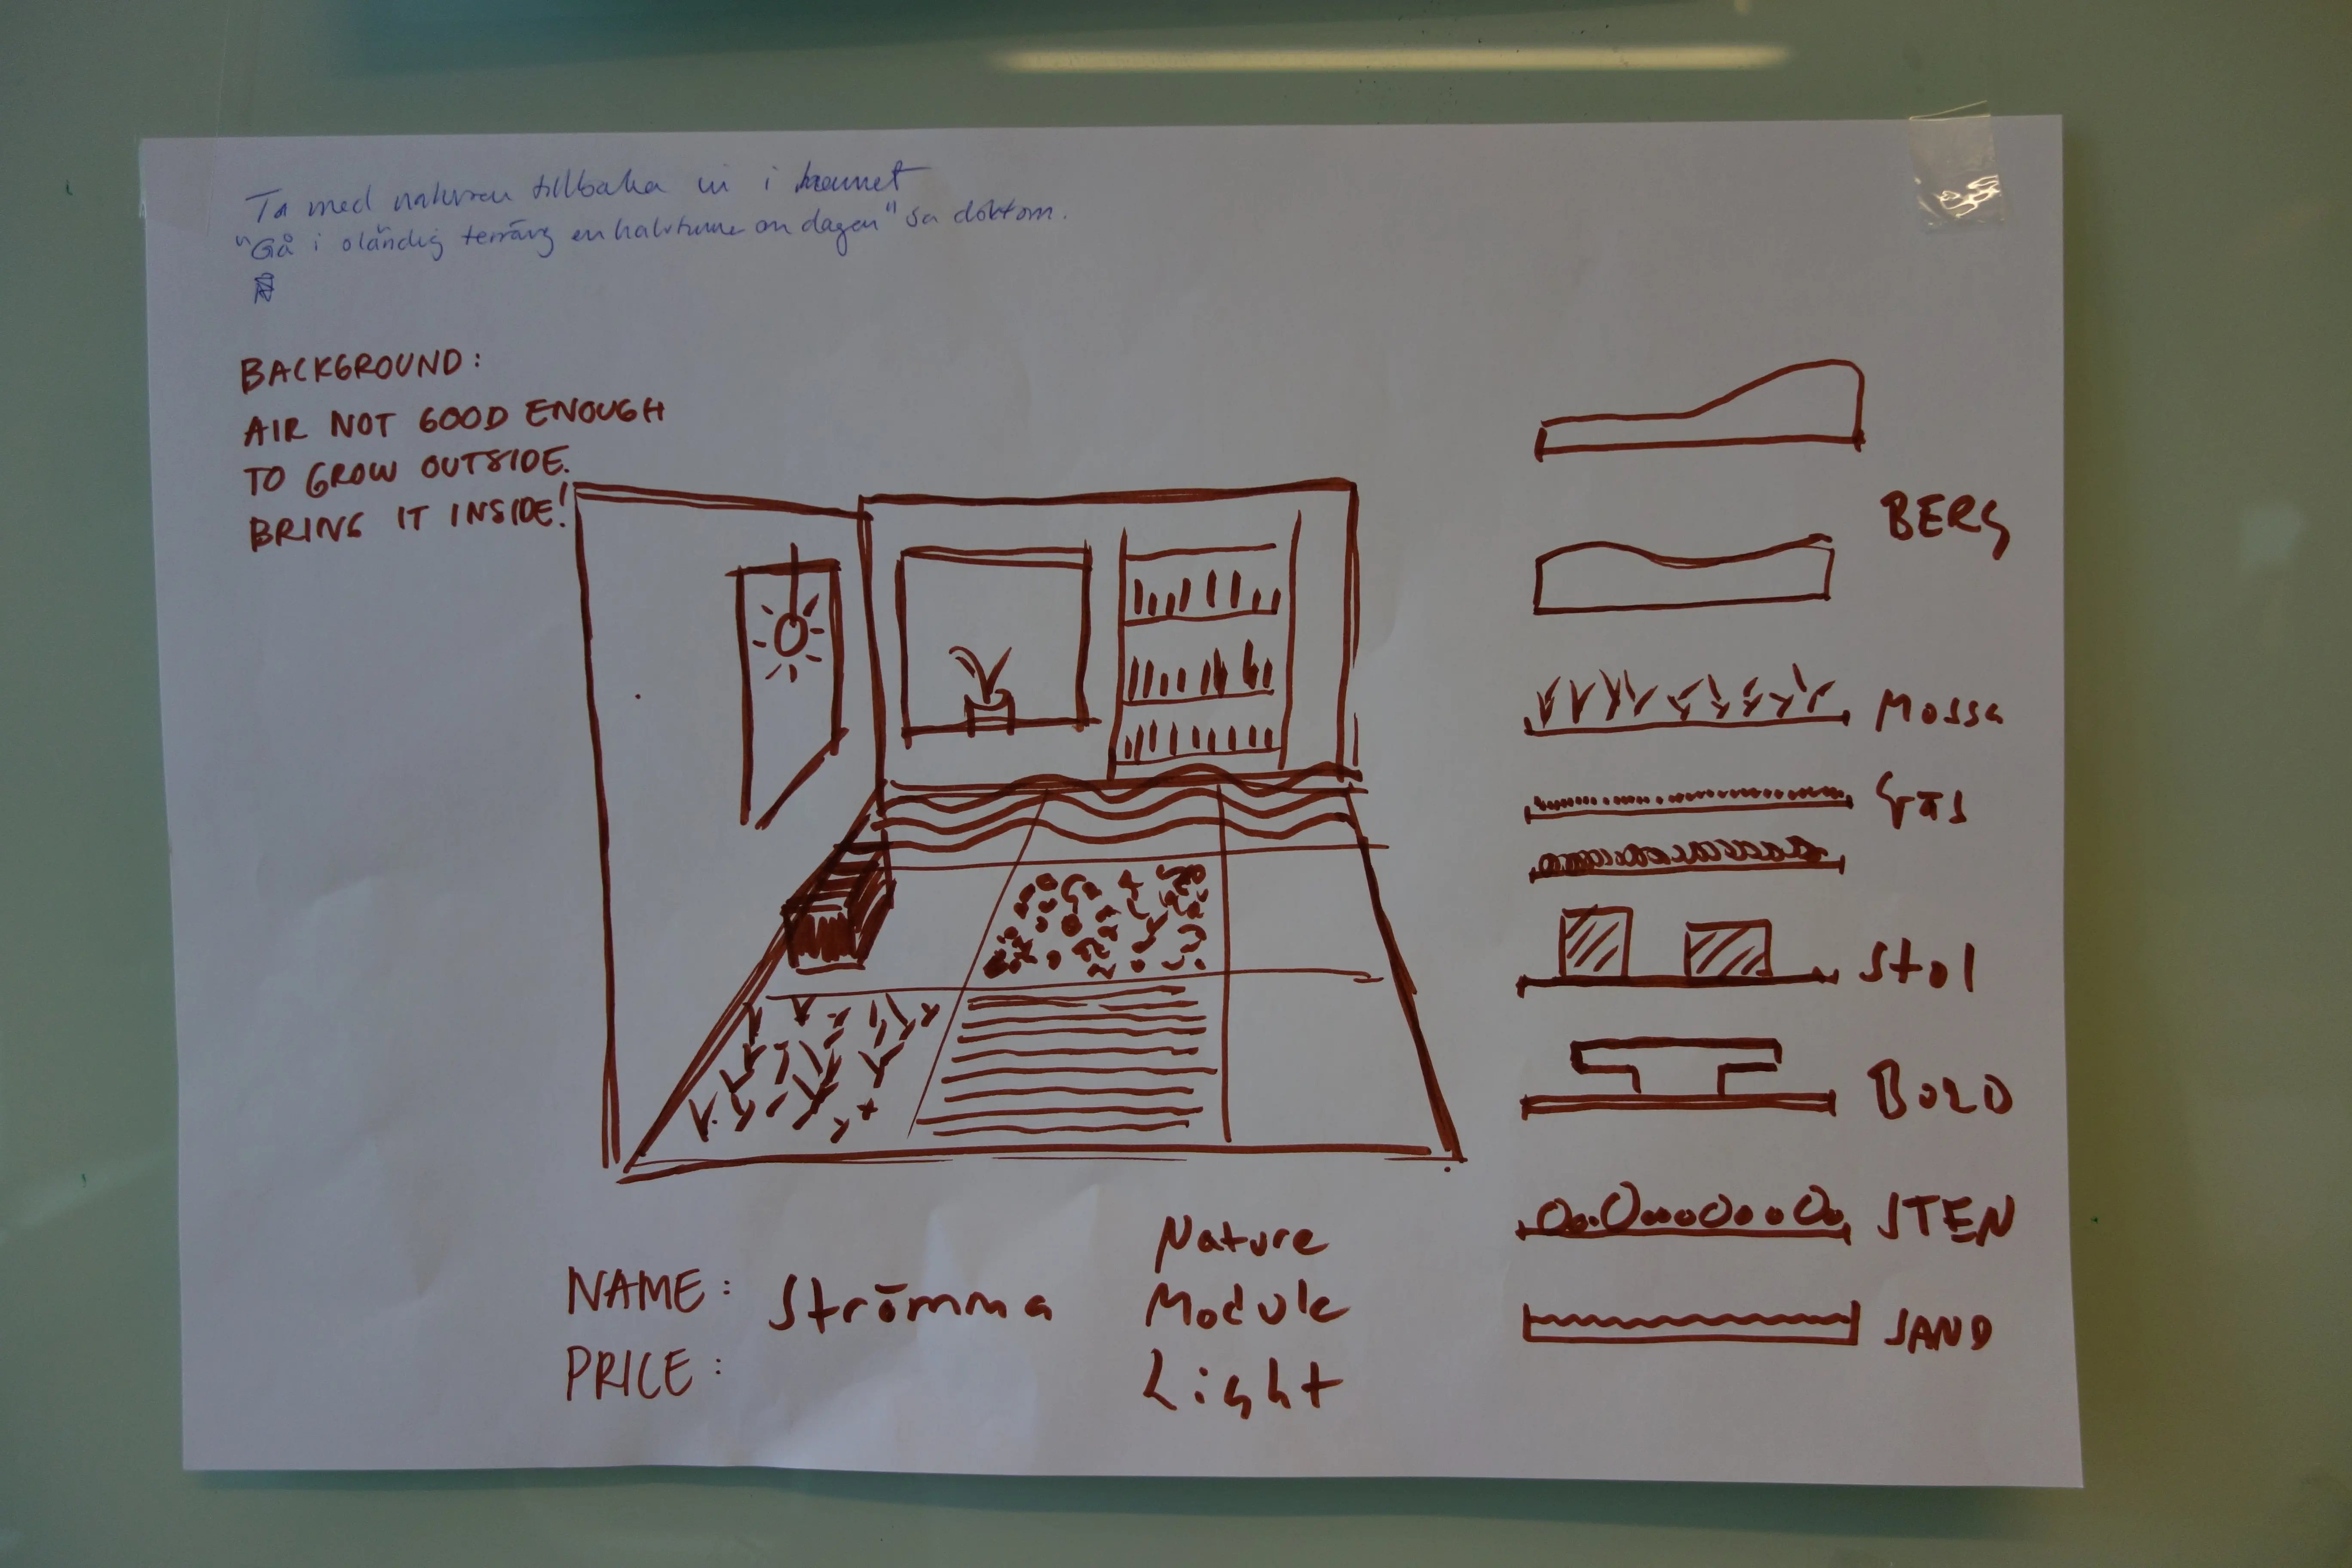 Ta med naturen tillbaka in i hemmet
"Gå i oländig terräng en halvtimme om dagen" sa doktorn.
BACKGROUND:
AIR NOT GOOD ENOUGH
TO GROW OUTSIDE.
BRING IT INSIDE!
BERG
MOSSA
GräS
Stol
BORD
STEN
SAND
NAME: Strömma
PRICE:
Nature
Module
Light